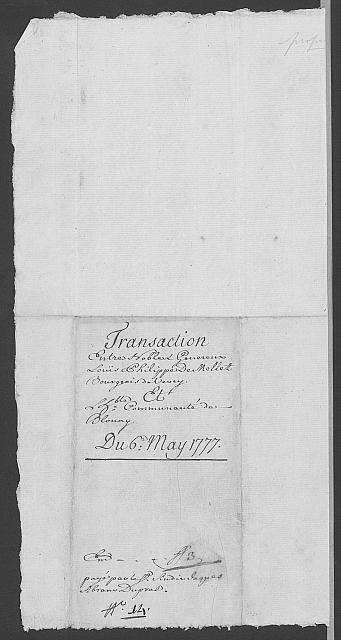 Transaction
Entre Noble & Genereux
Louïs Philippe De Mellet
Bourgeois de Vevey
Et
L'h.ble Communauté de
Blonay.
Du 6.e May 1777.
3
payé par le Sr.
Abram Dupraz.
14.